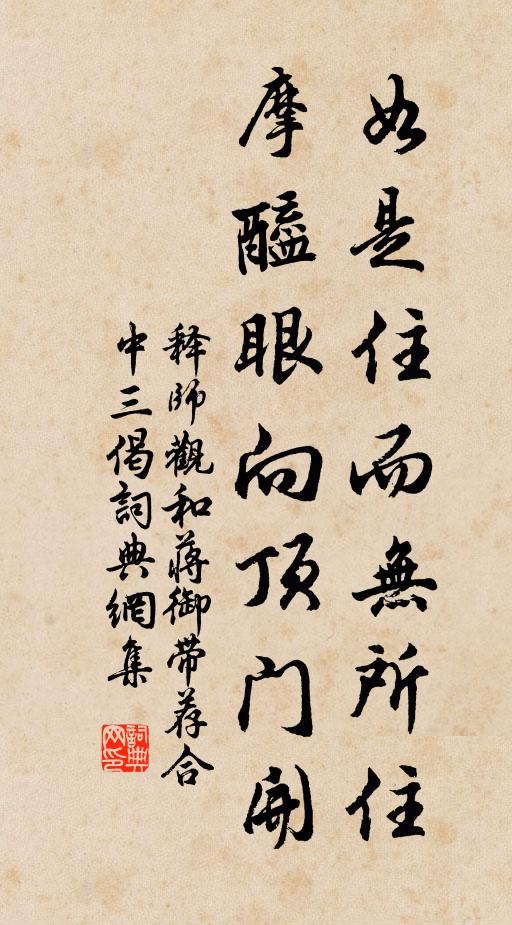 如是住而無所住
摩醯眼向頂門開
释師觀和蔣御带荐合
中三偈詞典網集
詞典网印